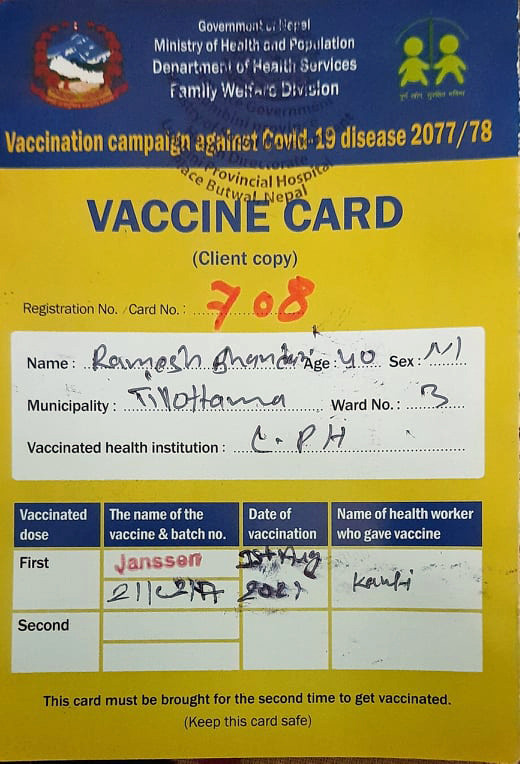 Government of Nepal
Ministry of Health and Population
Department of Health Services
Family Welfare Division
Vaccination campaign against Covid-19 disease 2077/78
Provincial Hospital
Butwal, Nepal
VACCINE CARD
(Client copy)
Registration No. / Card No.: 708
Name: Ramesh Bhandari Age: 40 Sex: M
Municipality: Tillottama Ward No.: 3
Vaccinated health institution: L.PH
Vaccinated dose
The name of the vaccine & batch no.
Date of vaccination
Name of health worker who gave vaccine
First
Janssen
Aug
2021
Second
This card must be brought for the second time to get vaccinated.
(Keep this card safe)